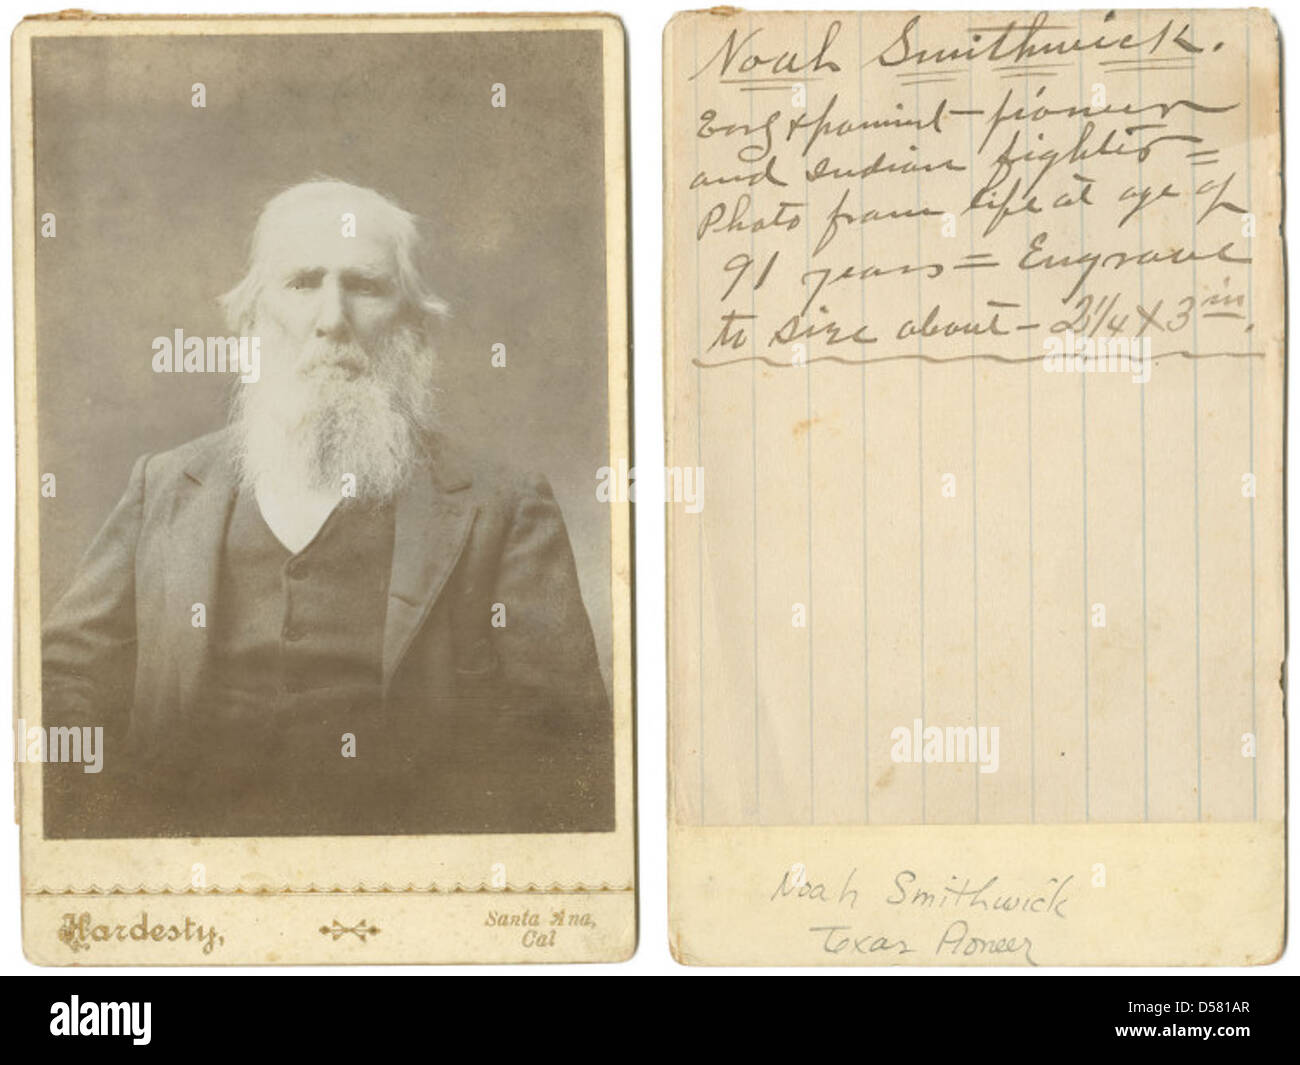 Hardesty,
Santa Ana,
Cal
Noah Smithwick.
pioneer
and Indian fighter =
Photo from life at age of
91 years = Engrave
to size about - 2 1/4 X 3 in.
Noah Smithwick
Texas Pioneer
alamy
alamy
alamy
alamy
alamy
a
a
a
a
www.alamy.com - D581AR